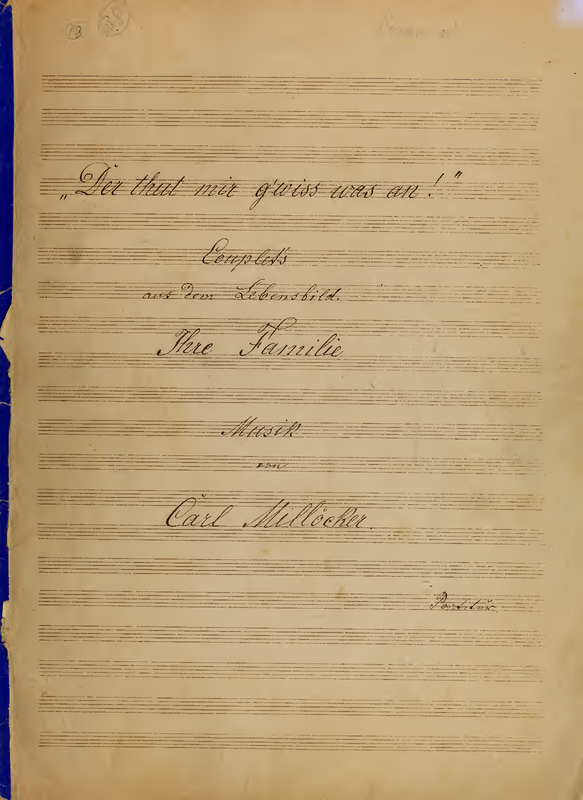 „Der thut mir g'wiss was an!"
Couplets
aus dem Lebensbild.
Ihre Familie
Musik
von
Carl Millöcker.
Partitur.